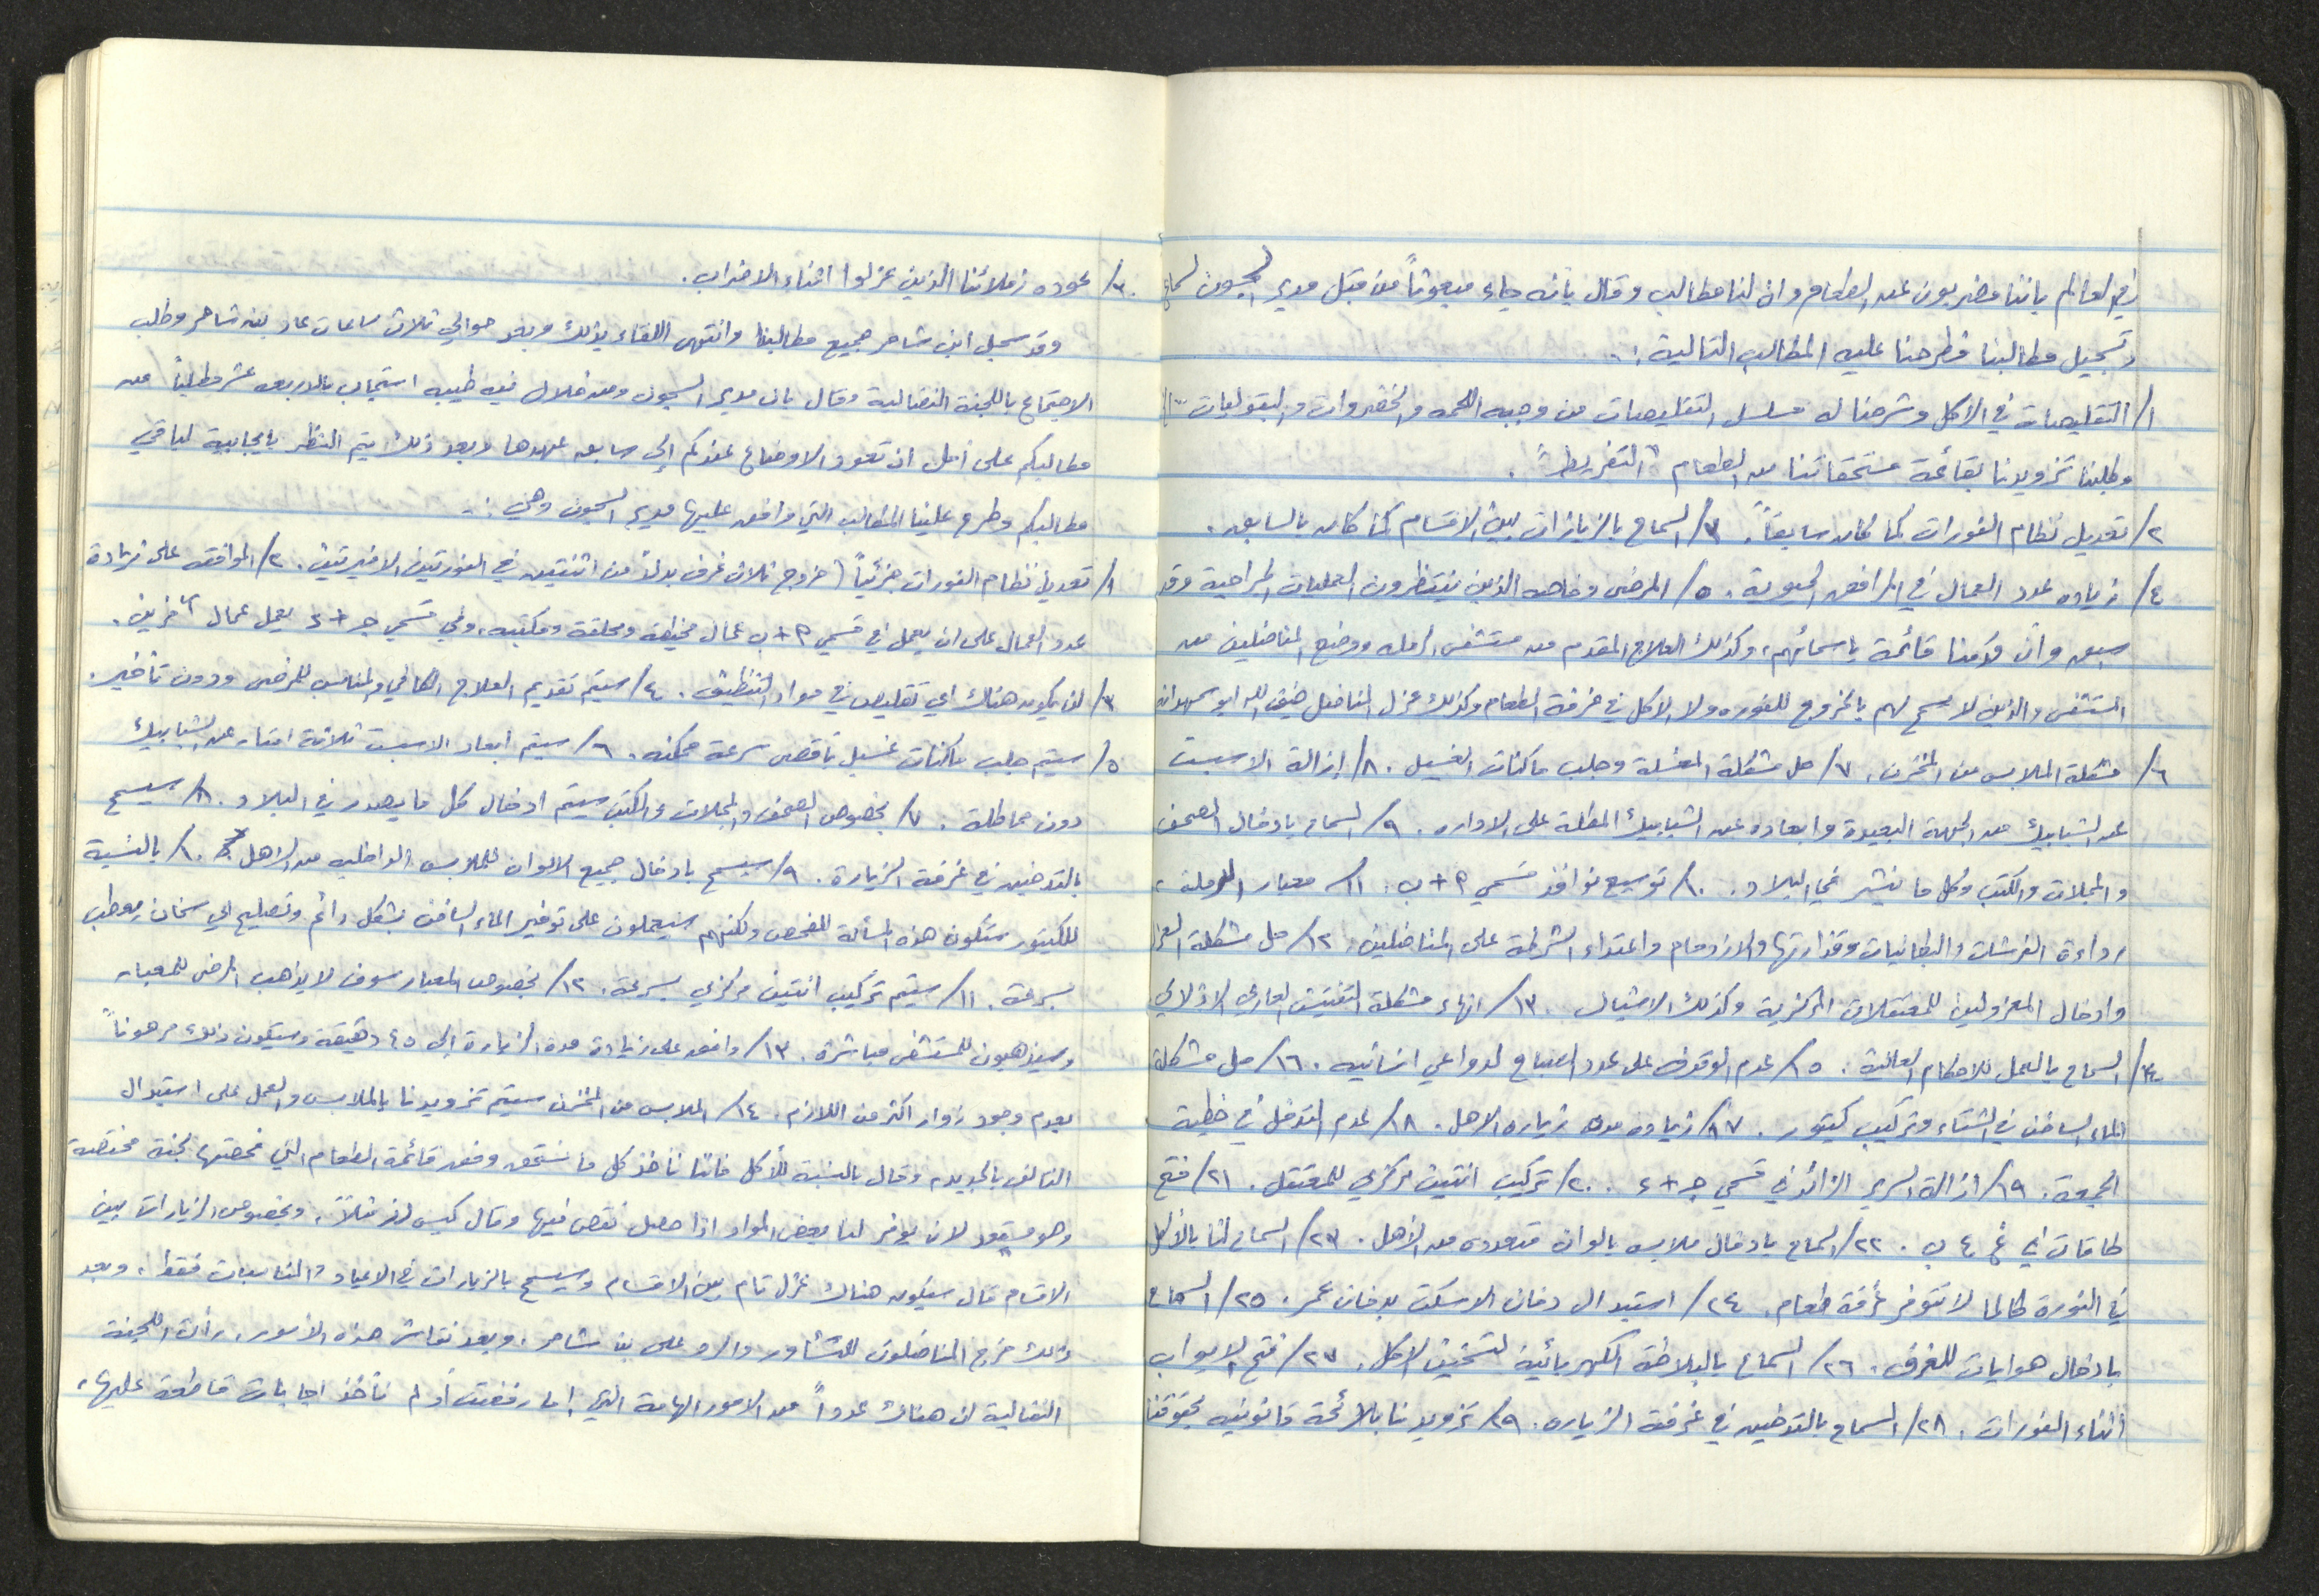 في العالم باننا مضربون عن الطعام وان لنا مطالب وقال بانه جاء مبعوثاً من قبل مدير السجون لسماع
وتسجيل مطالبنا فطرحنا عليه المطالب التالية :-
١/ التقليصات في الاكل وشرحنا له مسلسل التقليصات من وجبه اللحمه والخضروات والبقوليات ... الخ
وطلبنا تزويدنا بقائمة مستحقاتنا من الطعام "التفريط" .
٢/ تعديل نظام الفورات كما كان سابقاً . ٣/ السماح بالزيارات بين الاقسام كما كان بالسابق .
٤/ زياده عدد العمال في المرافق الحيوية . ٥/ المرضى وخاصه الذين ينتظرون العمليات الجراحية وقد
سبق وأن قدمنا قائمة باسمائهم ، وكذلك العلاج المقدم من مستشفى الرمله ووضع المناضلين من
المستشفى والذين لا يسمح لهم بالخروج للفوره ولا الاكل في غرفة الطعام وكذلك عزل المناضل ضيف الله ابو سمهدانه
٦/ مشكلة الملابس من المخزن . ٧/ حل مشكلة المغسلة وجلب ماكنات الغسيل . ٨/ إزالة الاسبست
عن الشبابيك من الجهة البعيدة وابعاده عن الشبابيك المطلة على الاداره . ٩/ السماح بادخال الصحف
والمجلات والكتب وكل ما ينشر في البلاد . ١٠/ توسيع نوافذ قسمي أ + ب . ١١/ معبار الرملة ،
رداءة الفرشات والبطانيات وقذارتها والازدحام واعتداء الشرطة على المناضلين . ١٢/ حل مشكلة العزل
وادخال المعزولين للمعتقلات المركزية وكذلك الاشبال . ١٣/ انهاء مشكلة التفتيش العاري الاذلالي
١٤/ السماح بالعمل للاحكام العالية . ١٥/ عدم الوقوف على عدد الصباح لدواعي انسانيه . ١٦/ حل مشكلة
الماء الساخن في الشتاء وتركيب كيتور . ١٧/ زياده مده زياره الاهل . ١٨/ عدم التدخل في خطبة
الجمعة . ١٩/ ازالة السرير الزائد في قسمي جـ + د . ٢٠/ تركيب انتين مركزي للمعتقل . ٢١/ فتح
طاقات في غ ٤ ب . ٢٢/ السماح بادخال ملابس بالوان متعدده من الأهل . ٢٣/ السماح لنا بالأكل
في الفورة طالما لا تتوفر غرفة طعام . ٢٤/ استبدال دخان الاسكت بدخان عمر . ٢٥/ السماح
بادخال هوايات للغرف . ٢٦/ السماح بالبلاطة الكهربائية لتسخين الاكل . ٢٧/ فتح الابواب
أثناء الفورات . ٢٨/ السماح بالتدخين في غرفة الزياره . ٢٩/ تزويدنا بلائحة قانونيه بحقوقنا
٣٠/ عوده زملائنا الذين عزلوا اثناء الاضراب .
وقد سجل ابن شاحر جميع مطالبنا وانتهى اللقاء بذلك وبعد حوالي ثلاث ساعات عاد بن شاحر وطلب
الاجتماع باللجنة النضالية وقال بان مدير السجون ومن خلال نيه طيبه استجاب بالاربعه عشر مطلباً من
مطالبكم على أمل ان تعود الاوضاع عندكم إلى سابق عهدها وبعد ذلك يتم النظر بايجابية لباقي
مطالبكم وطرح علينا المطالب التي وافق عليها مدير السجون وهي :-
١/ تعديل نظام الفورات جزئياً (خروج ثلاث غرف بدلاً من اثنتين في الفورتين الاخيرتين . ٢/ الموافقه على زيادة
عدد العمال على ان يعمل في قسمي أ + ب عمال مخيطه ومحلقة ومكتبه ، وفي قسمي جـ + د يعمل عمال آخرين .
٣/ لن يكون هناك اي تقليص في مواد التنظيف . ٤/ سيتم تقديم العلاج الكافي والمناسب للمرضى ودون تأخير .
٥/ سيتم جلب ماكنات غسيل بأقصى سرعة ممكنه . ٦/ سيتم ابعاد الاسبست ثلاثة امتار عن الشبابيك
دون مماطلة . ٧/ بخصوص الصحف والمجلات والكتب سيتم ادخال كل ما يصدر في البلاد . ٨/ سيسمح
بالتدخين في غرفة الزيارة . ٩/ سيسمح بادخال جميع الالوان للملابس الداخليه من الاهل . ١٠/ بالنسبة
للكيتور ستكون هذه المسألة للفحص ولكنهم سيعملون على توفير الماء الساخن بشكل دائم وتصليح اي سخان يعطب
بسرعة . ١١/ سيتم تركيب انتين مركزي بسرعة . ١٢/ بخصوص المعبار سوف لا يذهب المرضى للمعبار
وسيذهبون للمستشفى مباشرة . ١٣/ وافق على زيادة مدة الزيارة إلى ٤٥ دقيقة وسيكون ذلك مرهوناً
بعدم وجود زوار اكثر من اللازم . ١٤/ الملابس من المخزن سيتم تزويدنا بالملابس والعمل على استبدال
التالف بالجديد وقال بالنسبة للأكل فاننا نأخذ كل ما نستحق وفق قائمة الطعام التي فحصتها لجنة مختصة
وهو مستعد لان يوفر لنا بعض المواد اذا حصل نقص فيها وقال كيس لفر مثلاً ، وبخصوص الزيارات بين
الاقسام قال سيكون هناك عزل تام بين الاقسام وسيسمح بالزيارات في الاعياد والمناسبات فقط ، وبعد
ذلك خرج المناضلون للتشاور والرد على بن شاحر ، وبعد نقاش هذه الأمور ، رأت اللجنة
النضالية ان هناك عدداً من الامور الهامة التي إما رفضت أو لم نأخذ اجابات قاطعة عليها ،